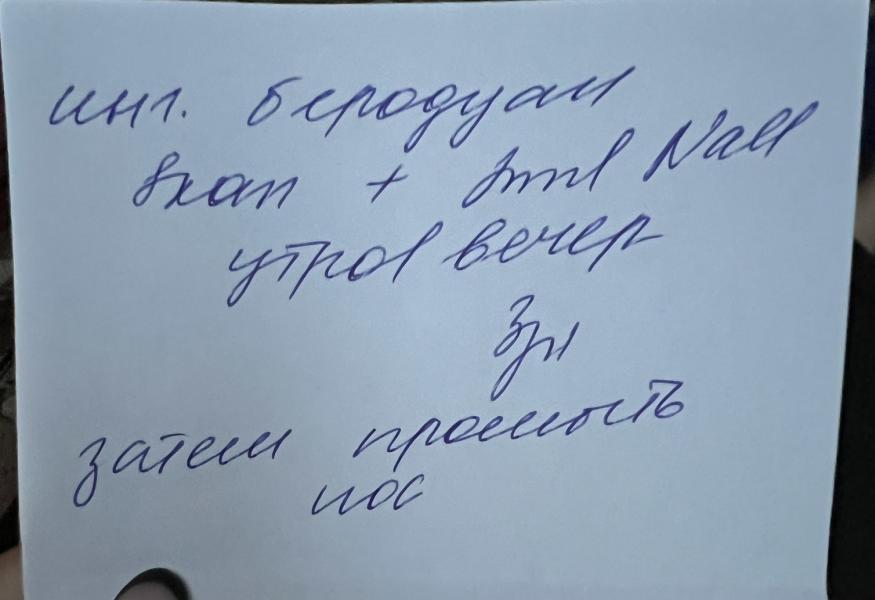 инг. беродуал
8 кап + 2 ml NaCl
утро/вечер
3 дн
затем промыть
нос